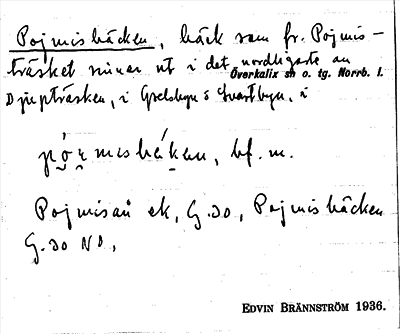 Pojmisbäcken, bäck som fr. Pojmis-
träsket rinner ut i det nordligaste av
Överkalix sn o. tg. Norrb. l.
Djupträsken, i Grelsbyn o Svartbyn, i
bf. m.
Pojmisån ek, G.30, Pojmisbäcken
G.30 NO,
EDVIN BRÄNNSTRÖM 1936.